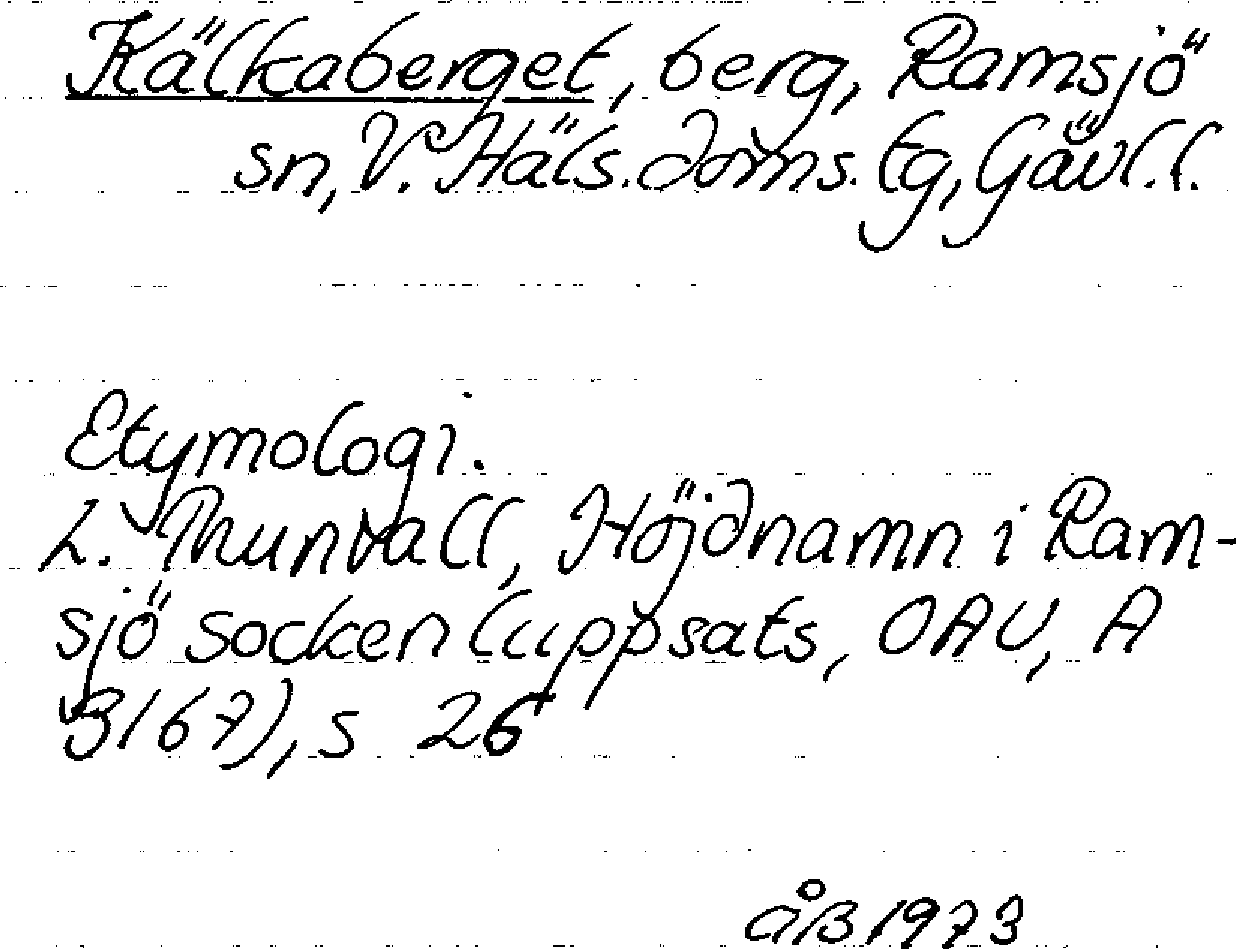 Kälkaberget, berg, Ramsjö
sn, V. Häls. doms. tg, Gävl.l.
Etymologi.
L. Thunvall, Höjdnamn i Ram-
sjö socken (uppsats, OAU, A
3167), s 26
åB 1973